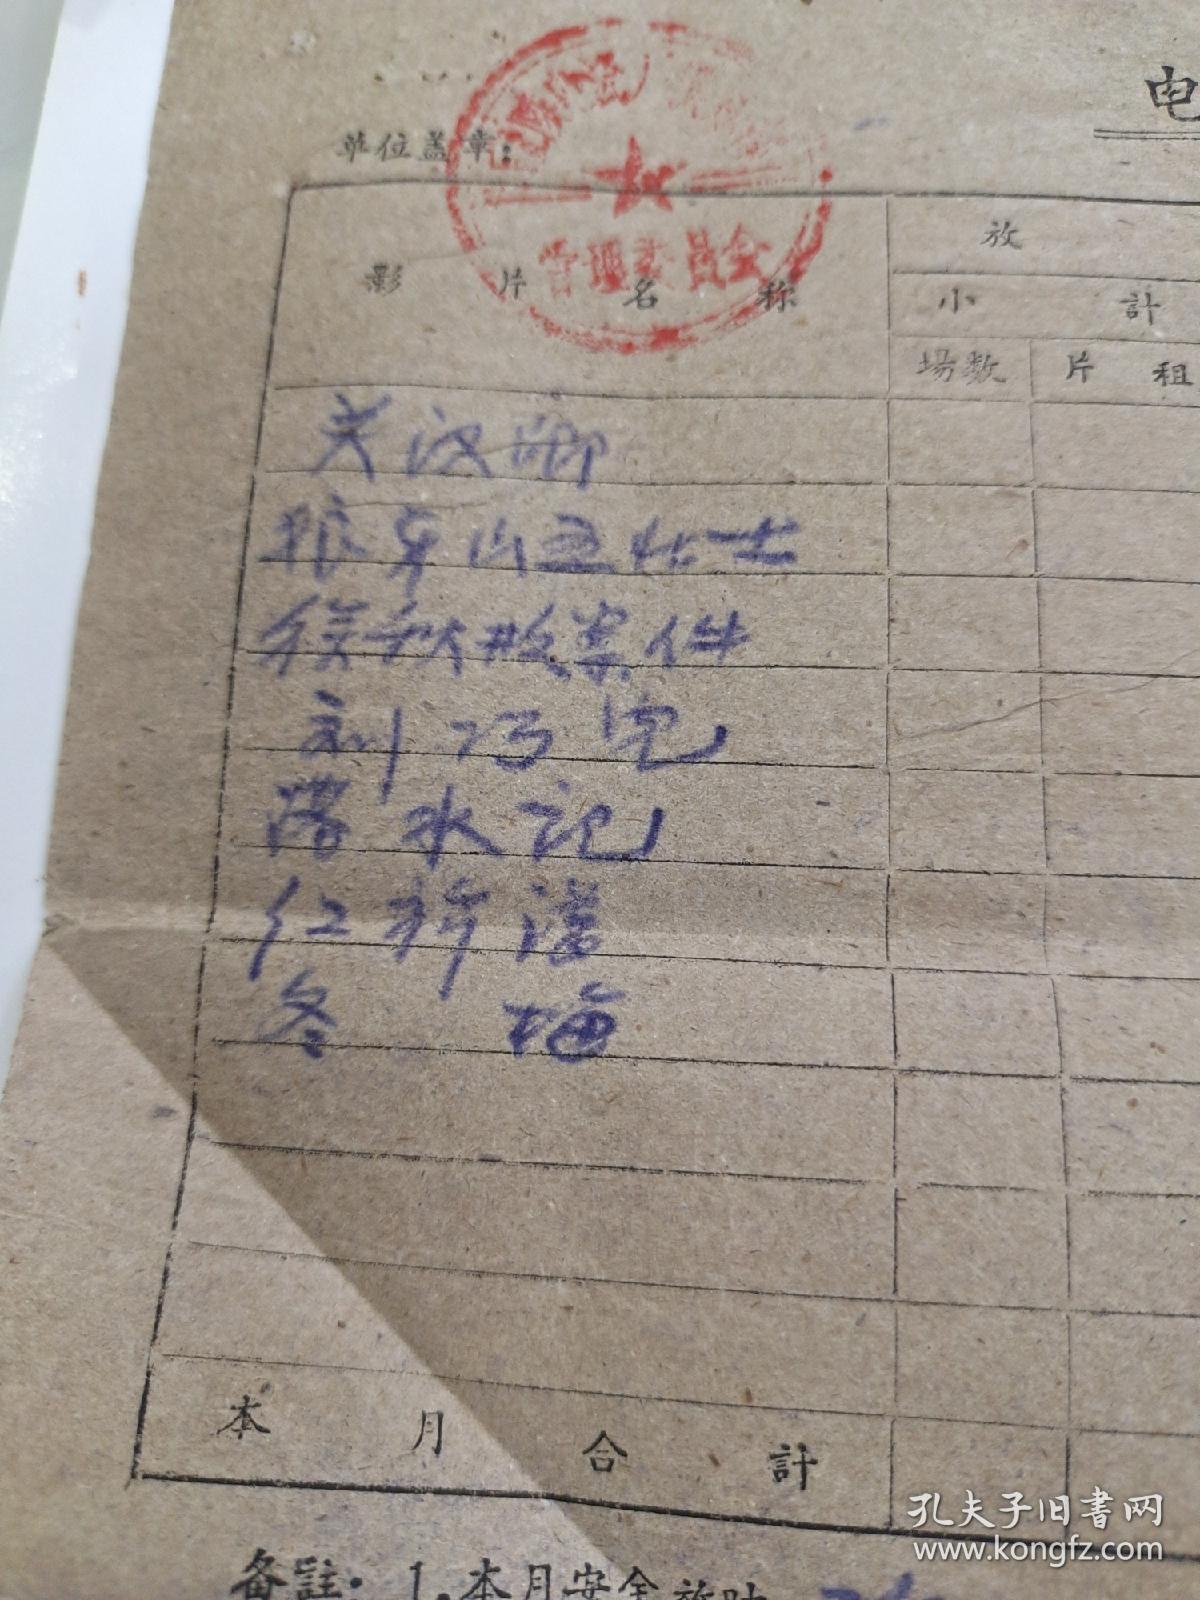 电
单位盖章：
管理委员会
影片名称
放
小計
場数 片租
关汉卿
狼牙山五壮士
徐秋影案件
刘巧儿
落水记
红珊瑚
冬梅
本月合計
备註：1.本月安全放映
孔夫子旧书网
www.kongfz.com